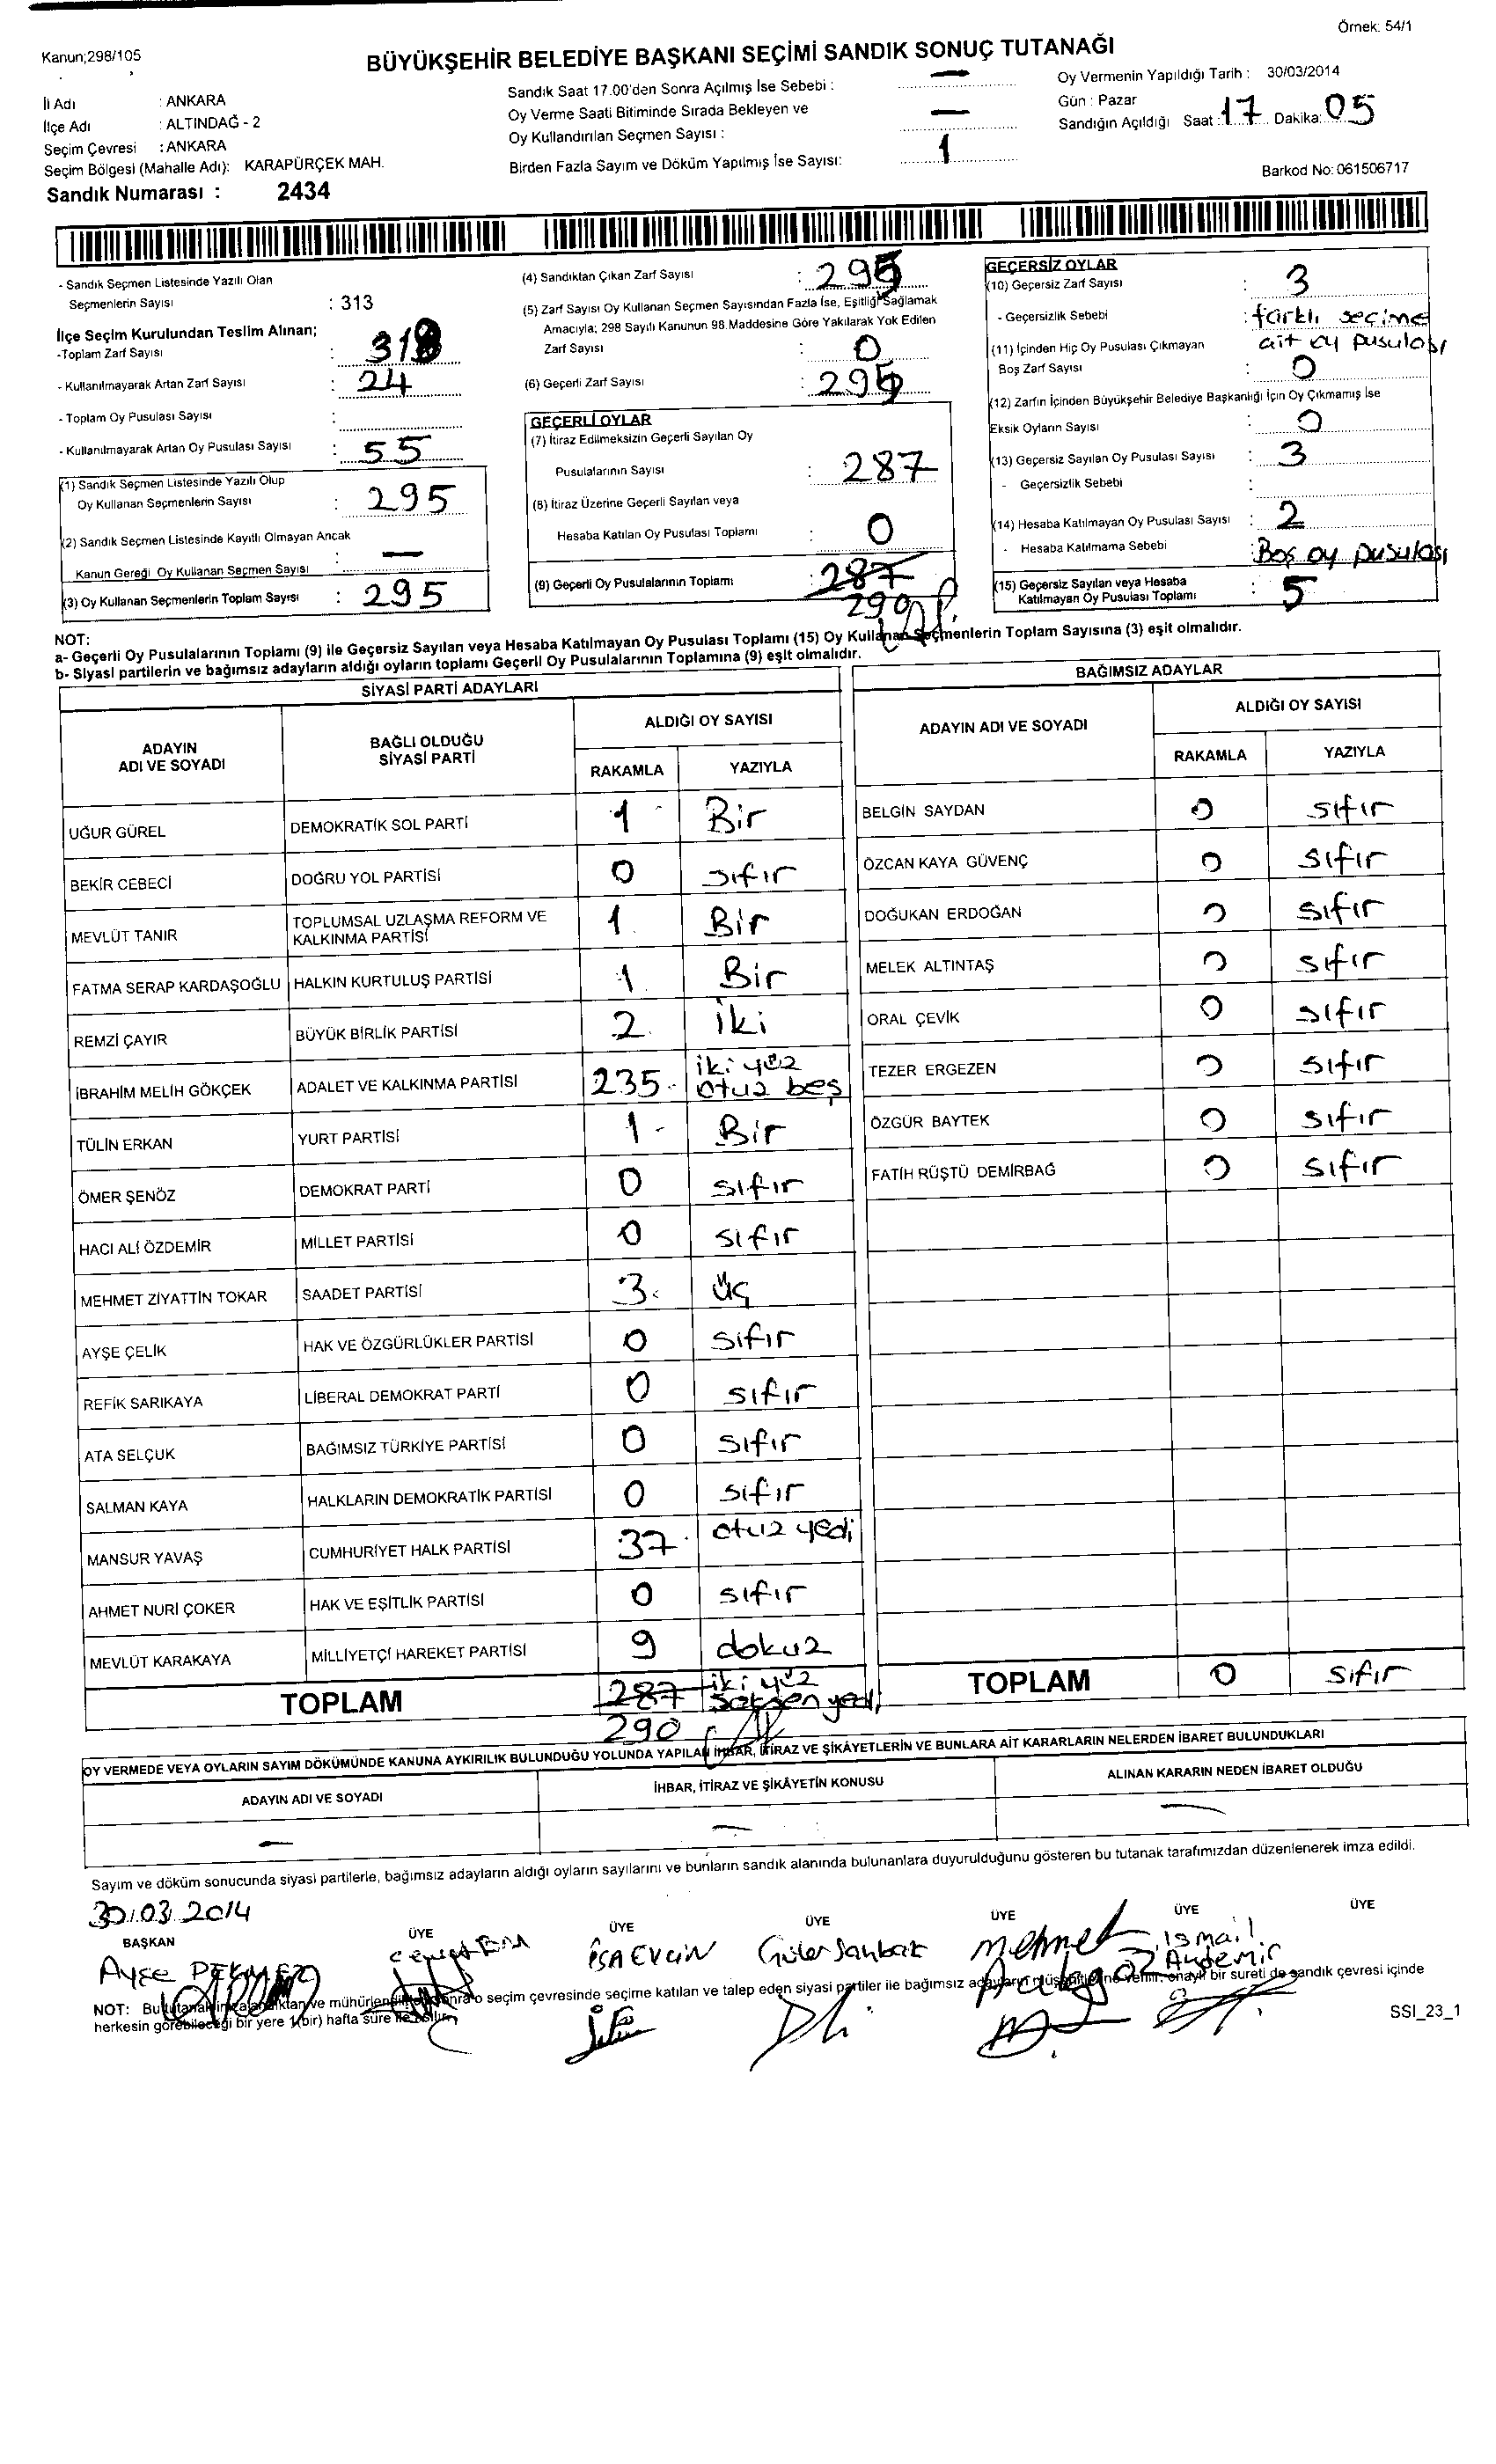 Örnek: 54/1
Kanun;298/105
BÜYÜKŞEHİR BELEDİYE BAŞKANI SEÇİMİ SANDIK SONUÇ TUTANAĞI
İl Adı : ANKARA
İlçe Adı : ALTINDAĞ - 2
Seçim Çevresi : ANKARA
Seçim Bölgesi (Mahalle Adı): KARAPÜRÇEK MAH.
Sandık Numarası : 2434
Sandık Saat 17.00'den Sonra Açılmış İse Sebebi : —
Oy Verme Saati Bitiminde Sırada Bekleyen ve
Oy Kullandırılan Seçmen Sayısı : —
Birden Fazla Sayım ve Döküm Yapılmış İse Sayısı: 1
Oy Vermenin Yapıldığı Tarih : 30/03/2014
Gün : Pazar
Sandığın Açıldığı Saat : 17 Dakika: 05
Barkod No: 061506717
- Sandık Seçmen Listesinde Yazılı Olan
Seçmenlerin Sayısı : 313
İlçe Seçim Kurulundan Teslim Alınan;
-Toplam Zarf Sayısı :
- Kullanılmayarak Artan Zarf Sayısı : 24
- Toplam Oy Pusulası Sayısı :
- Kullanılmayarak Artan Oy Pusulası Sayısı : 55
(1) Sandık Seçmen Listesinde Yazılı Olup
Oy Kullanan Seçmenlerin Sayısı : 295
(2) Sandık Seçmen Listesinde Kayıtlı Olmayan Ancak
Kanun Gereği Oy Kullanan Seçmen Sayısı : —
(3) Oy Kullanan Seçmenlerin Toplam Sayısı : 295
(4) Sandıktan Çıkan Zarf Sayısı : 295
(5) Zarf Sayısı Oy Kullanan Seçmen Sayısından Fazla İse, Eşitliği Sağlamak
Amacıyla; 298 Sayılı Kanunun 98.Maddesine Göre Yakılarak Yok Edilen
Zarf Sayısı : 0
(6) Geçerli Zarf Sayısı : 295
GEÇERLİ OYLAR
(7) İtiraz Edilmeksizin Geçerli Sayılan Oy
Pusulalarının Sayısı : 287
(8) İtiraz Üzerine Geçerli Sayılan veya
Hesaba Katılan Oy Pusulası Toplamı : 0
(9) Geçerli Oy Pusulalarının Toplamı : 287
290
GEÇERSİZ OYLAR
(10) Geçersiz Zarf Sayısı : 3
- Geçersizlik Sebebi : farklı seçime
ait oy pusulası
(11) İçinden Hiç Oy Pusulası Çıkmayan
Boş Zarf Sayısı : 0
(12) Zarfın İçinden Büyükşehir Belediye Başkanlığı İçin Oy Çıkmamış İse
Eksik Oyların Sayısı : 0
(13) Geçersiz Sayılan Oy Pusulası Sayısı : 3
- Geçersizlik Sebebi :
(14) Hesaba Katılmayan Oy Pusulası Sayısı : 2
- Hesaba Katılmama Sebebi : Boş oy pusulası
(15) Geçersiz Sayılan veya Hesaba
Katılmayan Oy Pusulası Toplamı : 5
NOT:
a- Geçerli Oy Pusulalarının Toplamı (9) ile Geçersiz Sayılan veya Hesaba Katılmayan Oy Pusulası Toplamı (15) Oy Kullanan Seçmenlerin Toplam Sayısına (3) eşit olmalıdır.
b- Siyasi partilerin ve bağımsız adayların aldığı oyların toplamı Geçerli Oy Pusulalarının Toplamına (9) eşit olmalıdır.
SİYASİ PARTİ ADAYLARI
ADAYIN ADI VE SOYADI BAĞLI OLDUĞU SİYASİ PARTİ ALDIĞI OY SAYISI
RAKAMLA YAZIYLA
UĞUR GÜREL DEMOKRATİK SOL PARTİ 1 Bir
BEKİR CEBECİ DOĞRU YOL PARTİSİ 0 sıfır
MEVLÜT TANIR TOPLUMSAL UZLAŞMA REFORM VE KALKINMA PARTİSİ 1 Bir
FATMA SERAP KARDAŞOĞLU HALKIN KURTULUŞ PARTİSİ 1 Bir
REMZİ ÇAYIR BÜYÜK BİRLİK PARTİSİ 2 iki
İBRAHİM MELİH GÖKÇEK ADALET VE KALKINMA PARTİSİ 235 iki yüz otuz beş
TÜLİN ERKAN YURT PARTİSİ 1 Bir
ÖMER ŞENÖZ DEMOKRAT PARTİ 0 sıfır
HACI ALİ ÖZDEMİR MİLLET PARTİSİ 0 sıfır
MEHMET ZİYATTİN TOKAR SAADET PARTİSİ 3 üç
AYŞE ÇELİK HAK VE ÖZGÜRLÜKLER PARTİSİ 0 sıfır
REFİK SARIKAYA LİBERAL DEMOKRAT PARTİ 0 sıfır
ATA SELÇUK BAĞIMSIZ TÜRKİYE PARTİSİ 0 sıfır
SALMAN KAYA HALKLARIN DEMOKRATİK PARTİSİ 0 sıfır
MANSUR YAVAŞ CUMHURİYET HALK PARTİSİ 37 otuz yedi
AHMET NURİ ÇOKER HAK VE EŞİTLİK PARTİSİ 0 sıfır
MEVLÜT KARAKAYA MİLLİYETÇİ HAREKET PARTİSİ 9 dokuz
TOPLAM 287 iki yüz seksen yedi
290
BAĞIMSIZ ADAYLAR
ADAYIN ADI VE SOYADI ALDIĞI OY SAYISI
RAKAMLA YAZIYLA
BELGİN SAYDAN 0 sıfır
ÖZCAN KAYA GÜVENÇ 0 sıfır
DOĞUKAN ERDOĞAN 0 sıfır
MELEK ALTINTAŞ 0 sıfır
ORAL ÇEVİK 0 sıfır
TEZER ERGEZEN 0 sıfır
ÖZGÜR BAYTEK 0 sıfır
FATİH RÜŞTÜ DEMİRBAĞ 0 sıfır
TOPLAM 0 sıfır
OY VERMEDE VEYA OYLARIN SAYIM DÖKÜMÜNDE KANUNA AYKIRILIK BULUNDUĞU YOLUNDA YAPILAN İHBAR, İTİRAZ VE ŞİKÂYETLERİN VE BUNLARA AİT KARARLARIN NELERDEN İBARET BULUNDUKLARI
ADAYIN ADI VE SOYADI İHBAR, İTİRAZ VE ŞİKÂYETİN KONUSU ALINAN KARARIN NEDEN İBARET OLDUĞU
— — —
Sayım ve döküm sonucunda siyasi partilerle, bağımsız adayların aldığı oyların sayılarını ve bunların sandık alanında bulunanlara duyurulduğunu gösteren bu tutanak tarafımızdan düzenlenerek imza edildi.
30.03.2014
BAŞKAN ÜYE ÜYE ÜYE ÜYE ÜYE ÜYE
Ayşe İSA EVCİN Güler mehmet ismail
Aydemir
NOT: Bu tutanak imzalandıktan ve mühürlendikten sonra o seçim çevresinde seçime katılan ve talep eden siyasi partiler ile bağımsız adayların müşahitlerine verilir. onaylı bir sureti de sandık çevresi içinde
herkesin görebileceği bir yere 1(bir) hafta süre ile asılır.
SSI_23_1